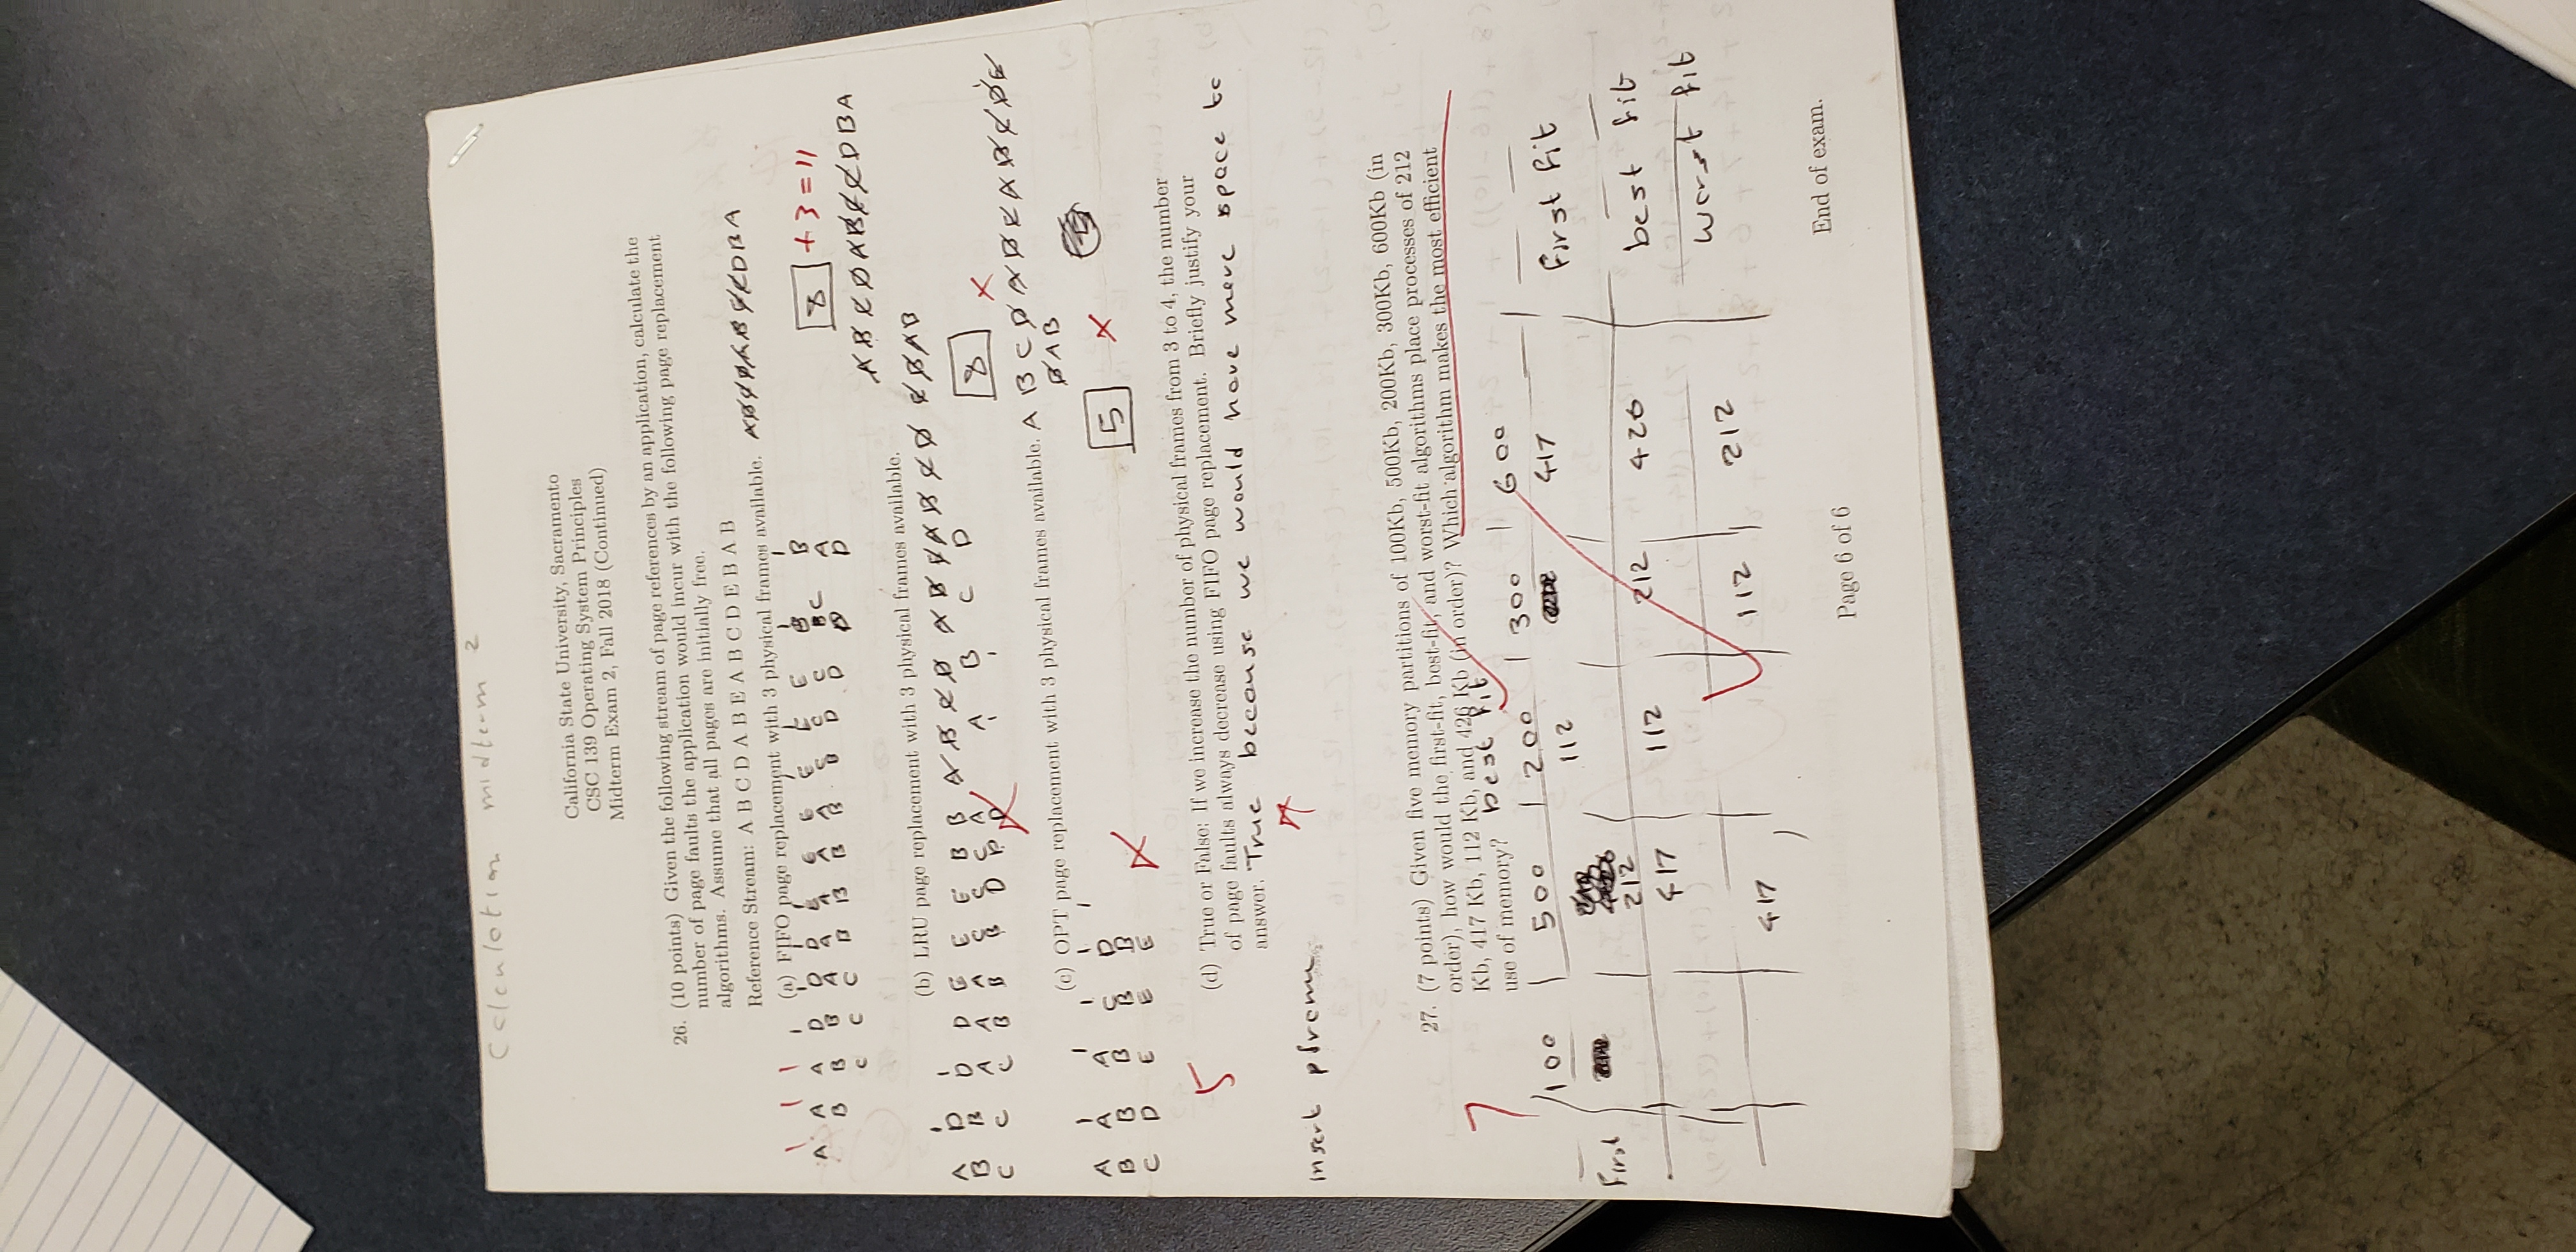 Calculation midterm 2
California State University, Sacramento
CSC 139 Operating System Principles
Midterm Exam 2, Fall 2018 (Continued)
26. (10 points) Given the following stream of page references by an application, calculate the
number of page faults the application would incur with the following page replacement
algorithms. Assume that all pages are initially free.
Reference Stream: A B C D A B E A B C D E B A B
(a) FIFO page replacement with 3 physical frames available.
A A A D D D E E E E E E B B
B B B A A A A A
C C C B B B B B D D D D
8 + 3 = 11
(b) LRU page replacement with 3 physical frames available.
A D D D E E E B B
B B A A A C C C A
C C C B B B D D D
A B C D
8
(c) OPT page replacement with 3 physical frames available.
A A A C D
B B B B B
C D E E E
5
5
(d) True or False: If we increase the number of physical frames from 3 to 4, the number
of page faults always decrease using FIFO page replacement. Briefly justify your
answer. True because we would have more space to
insert
27. (7 points) Given five memory partitions of 100Kb, 500Kb, 200Kb, 300Kb, 600Kb (in
order), how would the first-fit, best-fit, and worst-fit algorithms place processes of 212
Kb, 417 Kb, 112 Kb, and 426 Kb (in order)? Which algorithm makes the most efficient
use of memory? best fit
7
100 500 200 300 600
First 212 112 417 first fit
417 112 212 426 best fit
417 112 212 worst fit
Page 6 of 6
End of exam.